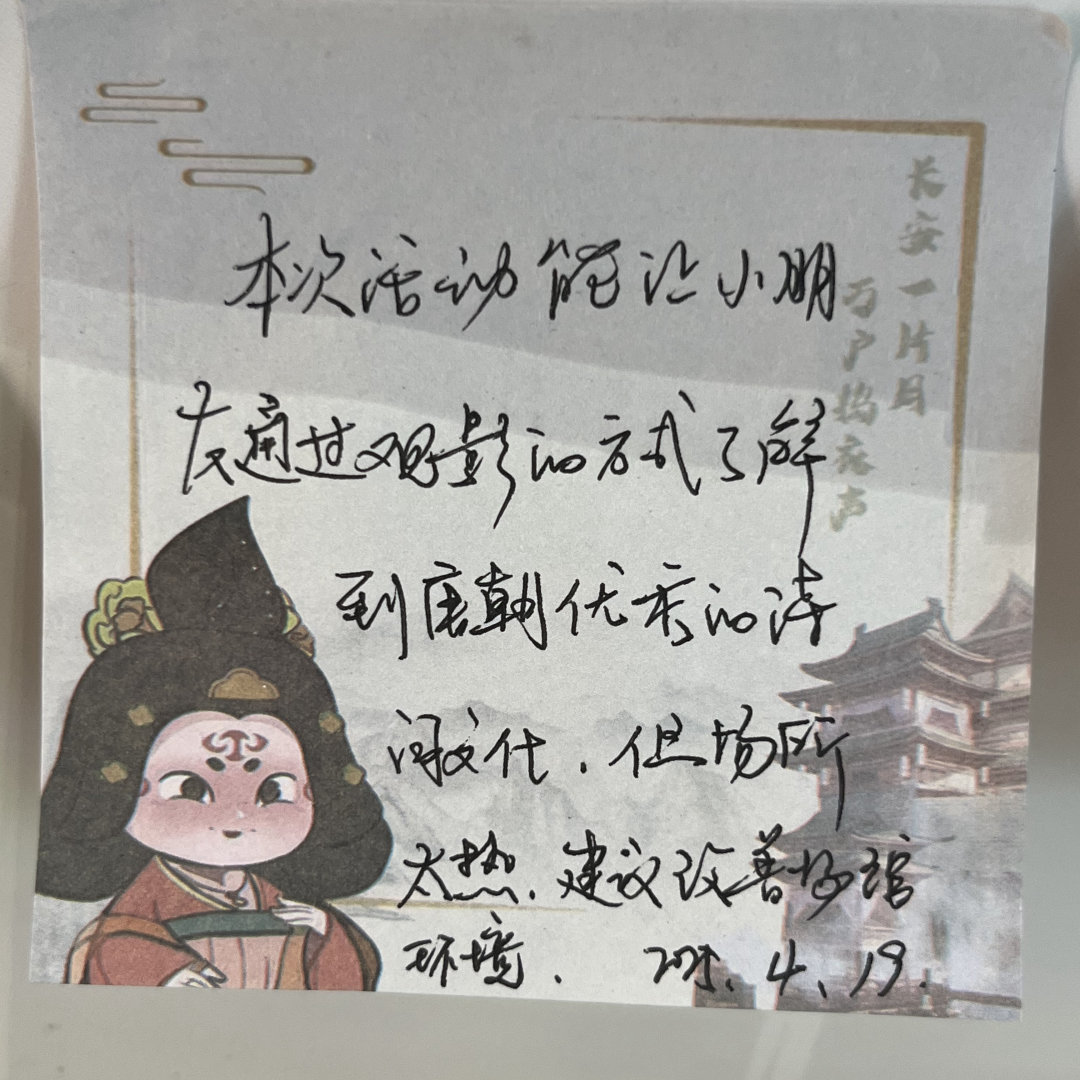 长安一片月
万户捣衣声
本次活动能让小朋
友通过观影的方式了解
到唐朝优秀的诗
词文化，但场所
太热，建议改善场馆
环境. 2025.4.19.